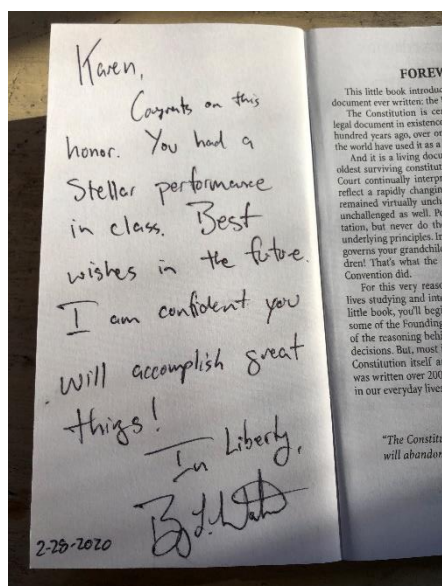 Karen,
Congrats on this
honor. You had a
Stellar performance
in class. Best
wishes in the future.
I am confident you
will accomplish great
things!
In Liberty,
2-28-2020
FOREW
This little book introduc
document ever written: the
The Constitution is cer
legal document in existence
hundred years ago, over on
the world have used it as a
And it is a living docu
oldest surviving constitut
Court continually interpr
reflect a rapidly changin
remained virtually unch
unchallenged as well. P
tation, but never do th
underlying principles. I
governs your grandchil
dren! That's what the
Convention did.
For this very reaso
lives studying and inte
little book, you'll begi
some of the Founding
of the reasoning behi
decisions. But, most
Constitution itself a
was written over 200
in our everyday lives
"The Constitu
will abandon